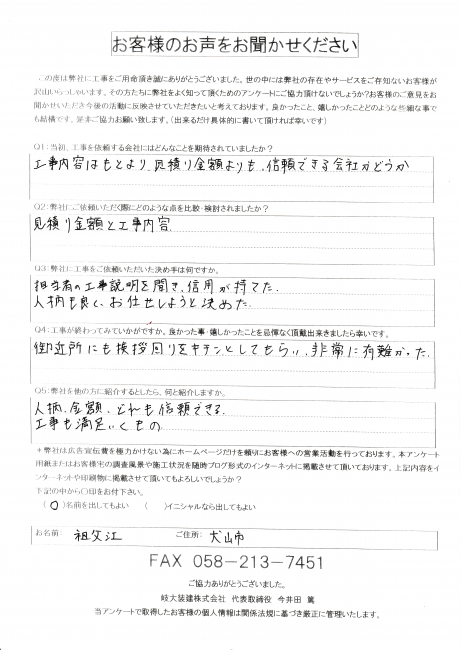 お客様のお声をお聞かせください
この度は弊社に工事をご用命頂き誠にありがとうございました。世の中には弊社の存在やサービスをご存知ないお客様が
沢山いらっしゃいます。その方たちに弊社をよく知って頂くためのアンケートにご協力頂けないでしょうか？お客様のご意見をお
聞かせいただき今後の活動に反映させていただきたいと考えております。良かったこと、嬉しかったことどのような些細な事で
も結構です。是非ご協力お願い致します。（出来るだけ具体的に書いて頂ければ幸いです）
Q1：当初、工事を依頼する会社にはどんなことを期待されていましたか？
工事内容はもとより、見積り金額よりも、信頼できる会社かどうか
Q2：弊社にご依頼いただく際にどのような点を比較・検討されましたか？
見積り金額と工事内容
Q3：弊社に工事をご依頼いただいた決め手は何ですか。
担当者の工事説明を聞き、信用が持てた。
人柄も良く、お任せしようと決めた。
Q4：工事が終わってみていかがですか。良かった事・嬉しかったことを忌憚なく頂戴出来ましたら幸いです。
御近所にも挨拶回りをキチンとしてもらい、非常に有難かった。
Q5：弊社を他の方に紹介するとしたら、何と紹介しますか。
人柄、金額、どれも信頼できる。
工事も満足いくもの
＊弊社は広告宣伝費を極力かけない為にホームページだけを頼りにお客様への営業活動を行っております。本アンケート
用紙またはお客様宅の調査風景や施工状況を随時ブログ形式のインターネットに掲載させて頂いております。上記内容をイ
ンターネットや印刷物に掲載させて頂いてもよろしいでしょうか？
下記の中から〇印をお付下さい。
（ 〇 ）名前を出してもよい （ ）イニシャルなら出してもよい
お名前： 祖父江 ご住所： 犬山市
FAX 058-213-7451
ご協力ありがとうございました。
岐大装建株式会社 代表取締役 今井田 篤
当アンケートで取得したお客様の個人情報は関係法規に基づき厳正に管理いたします。